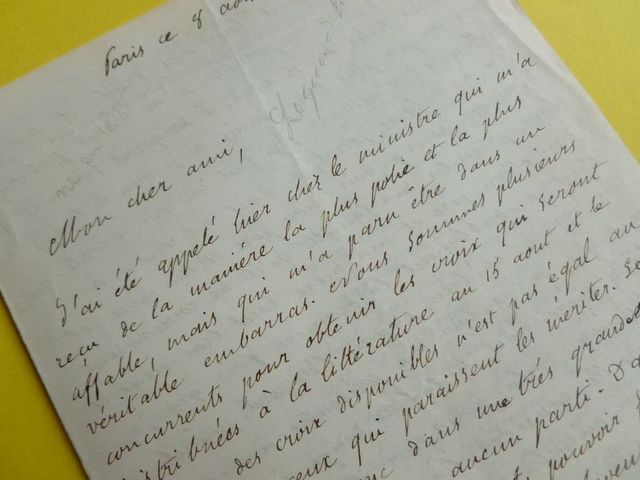 Paris ce 8
Mon cher ami,
J'ai été appelé hier chez le ministre qui m'a
reçu de la manière la plus polie et la plus
affable, mais qui m'a paru être dans un
véritable embarras. Nous sommes plusieurs
concurrents pour obtenir les croix qui seront
distribuées à la littérature au 15 aout et le
des croix disponibles n'est pas égal au
ceux qui paraissent les mériter. Se
dans une très grande
aucun parti. Da
pouvoir